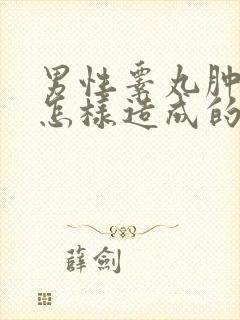 男性睾丸肿
怎樣造成的
薛劍